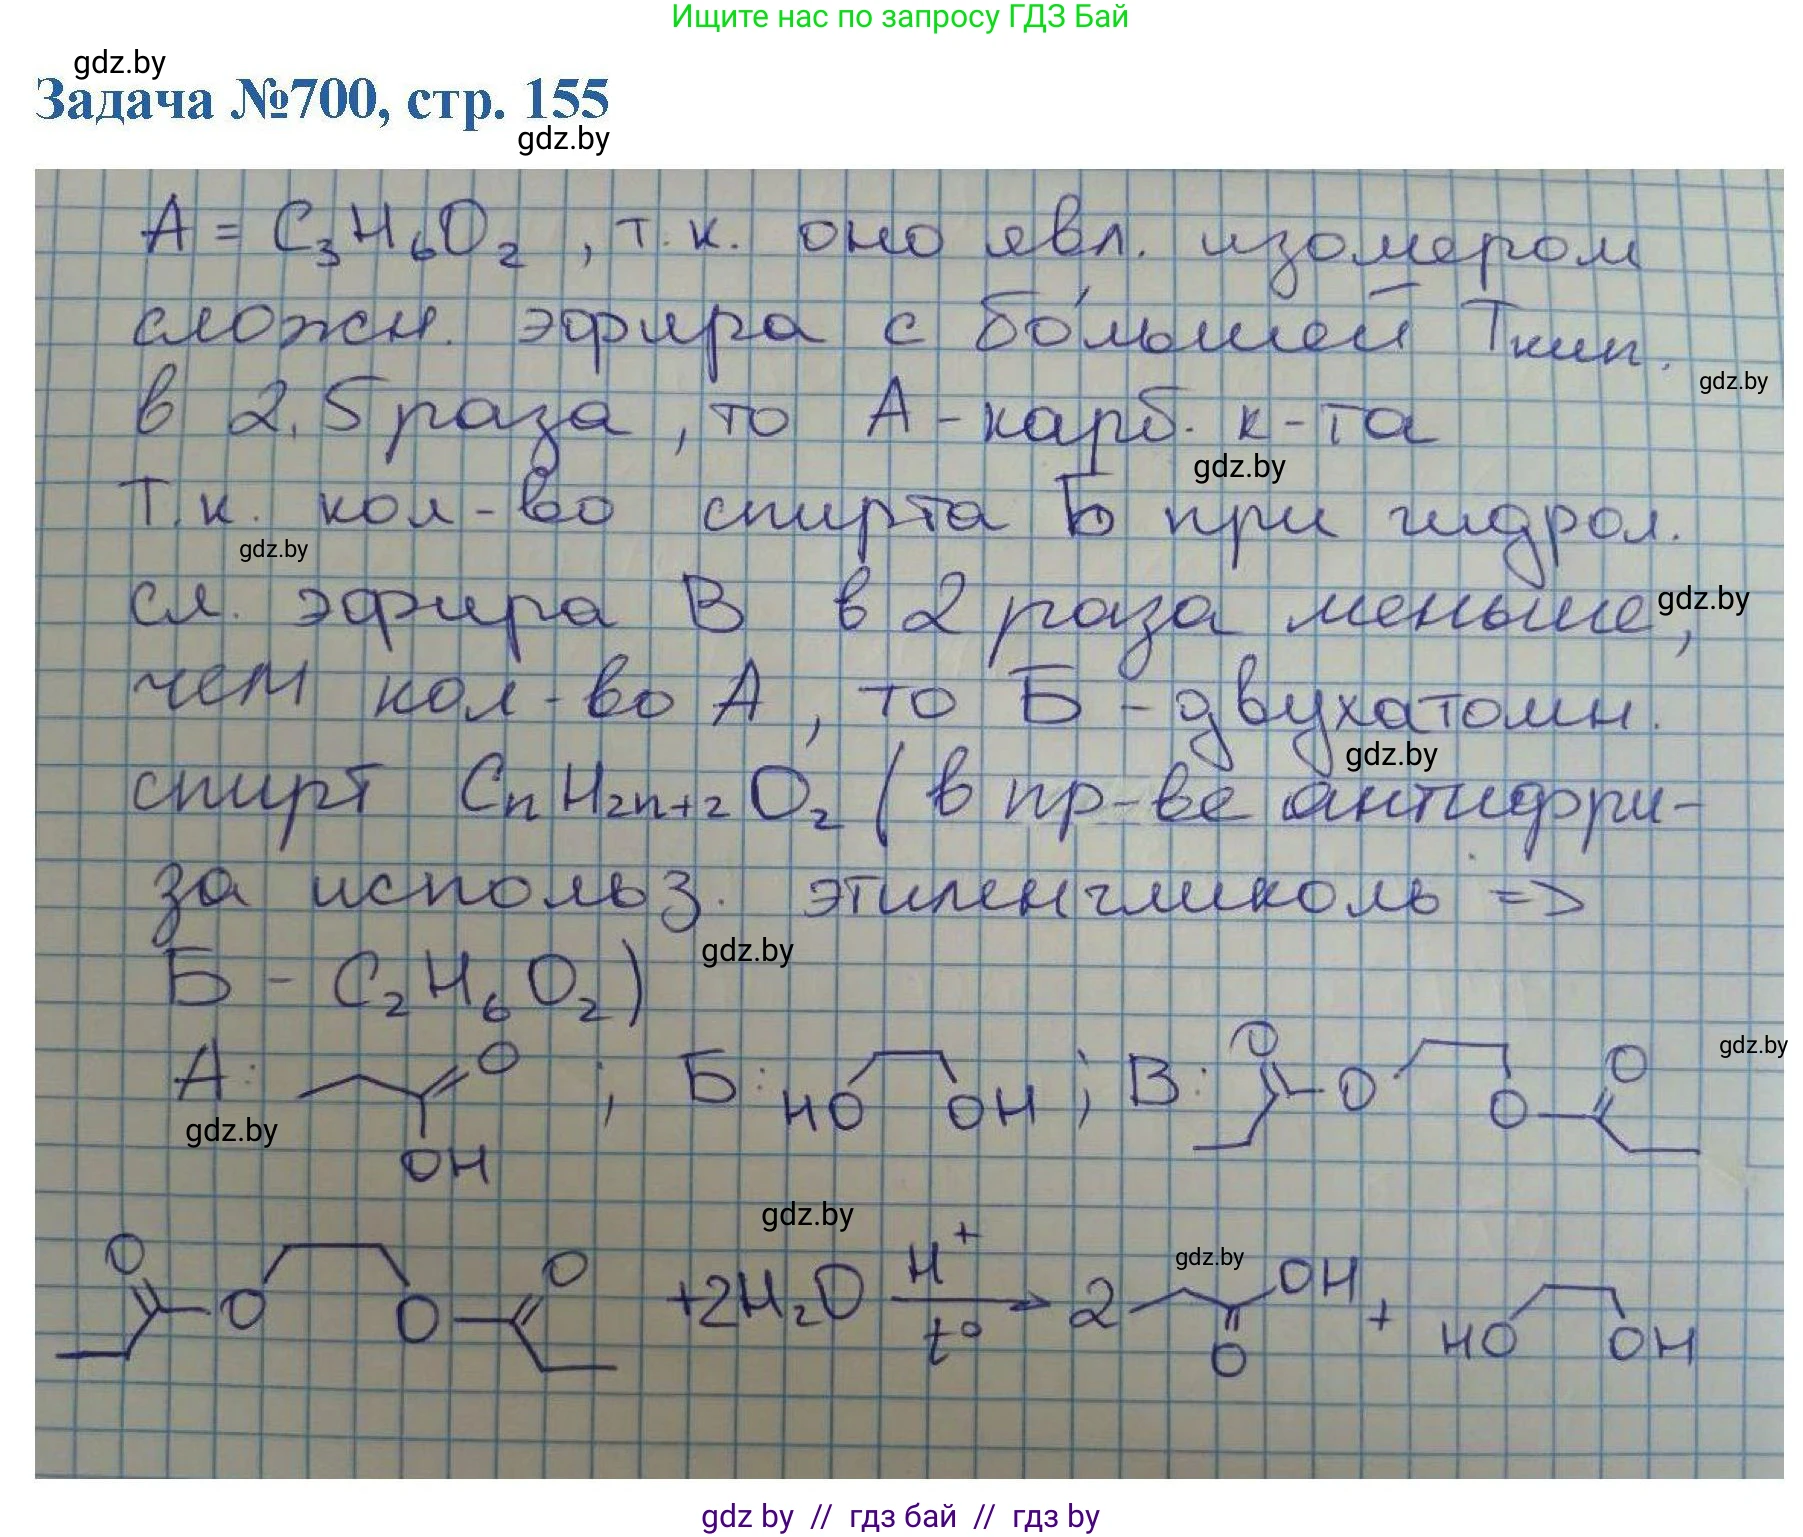 Ищите нас по запросу ГДЗ Бай
gdz.by
Задача №700, стр. 155
gdz.by
A = C₃H₆O₂, т.к. оно явл. изомером
сложн. эфира с бо́льшей Tкип.
gdz.by
в 2,5 раза, то A - карб. к-та
gdz.by
Т.к. кол-во спирта Б при гидрол.
gdz.by
сл. эфира В в 2 раза меньше,
gdz.by
чем кол-во A, то Б - двухатомн.
gdz.by
спирт CnH2n+2O₂ (в пр-ве антифри-
за использ. этиленгликоль =>
gdz.by
Б - C₂H₆O₂)
gdz.by
А: O OH ; Б: HO OH ; В: O O O O
gdz.by
gdz.by
gdz.by
O O O O +2H₂O H⁺ t° 2 OH O + HO OH
gdz.by // гдз бай // гдз by